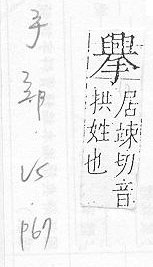 居竦切音
拱姓也
手部.15.p67